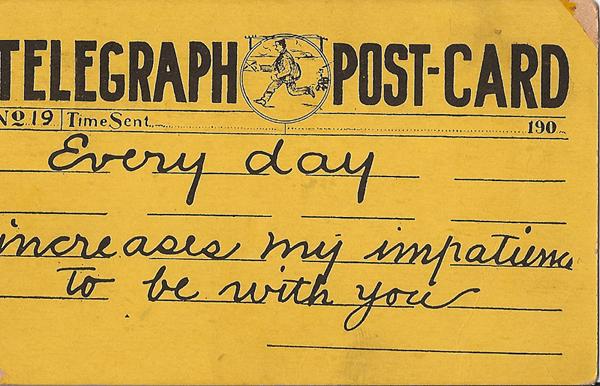 TELEGRAPH POST-CARD
No 19 Time Sent 190
Every day
increases my impatience
to be with you